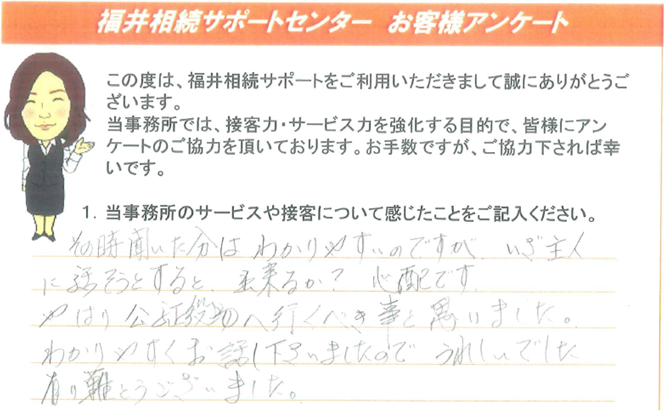 福井相続サポートセンター　お客様アンケート
この度は、福井相続サポートをご利用いただきまして誠にありがとうご
ざいます。
当事務所では、接客力・サービス力を強化する目的で、皆様にアン
ケートのご協力を頂いております。お手数ですが、ご協力下されば幸
いです。
1. 当事務所のサービスや接客について感じたことをご記入ください。
その時聞いた分はわかりやすいのですが、いざ主人
に話そうとすると、出来るか? 心配です。
やはり公証役場へ行くべき事と思いました。
わかりやすくお話し下さいましたので うれしいでした
有り難とうございました。